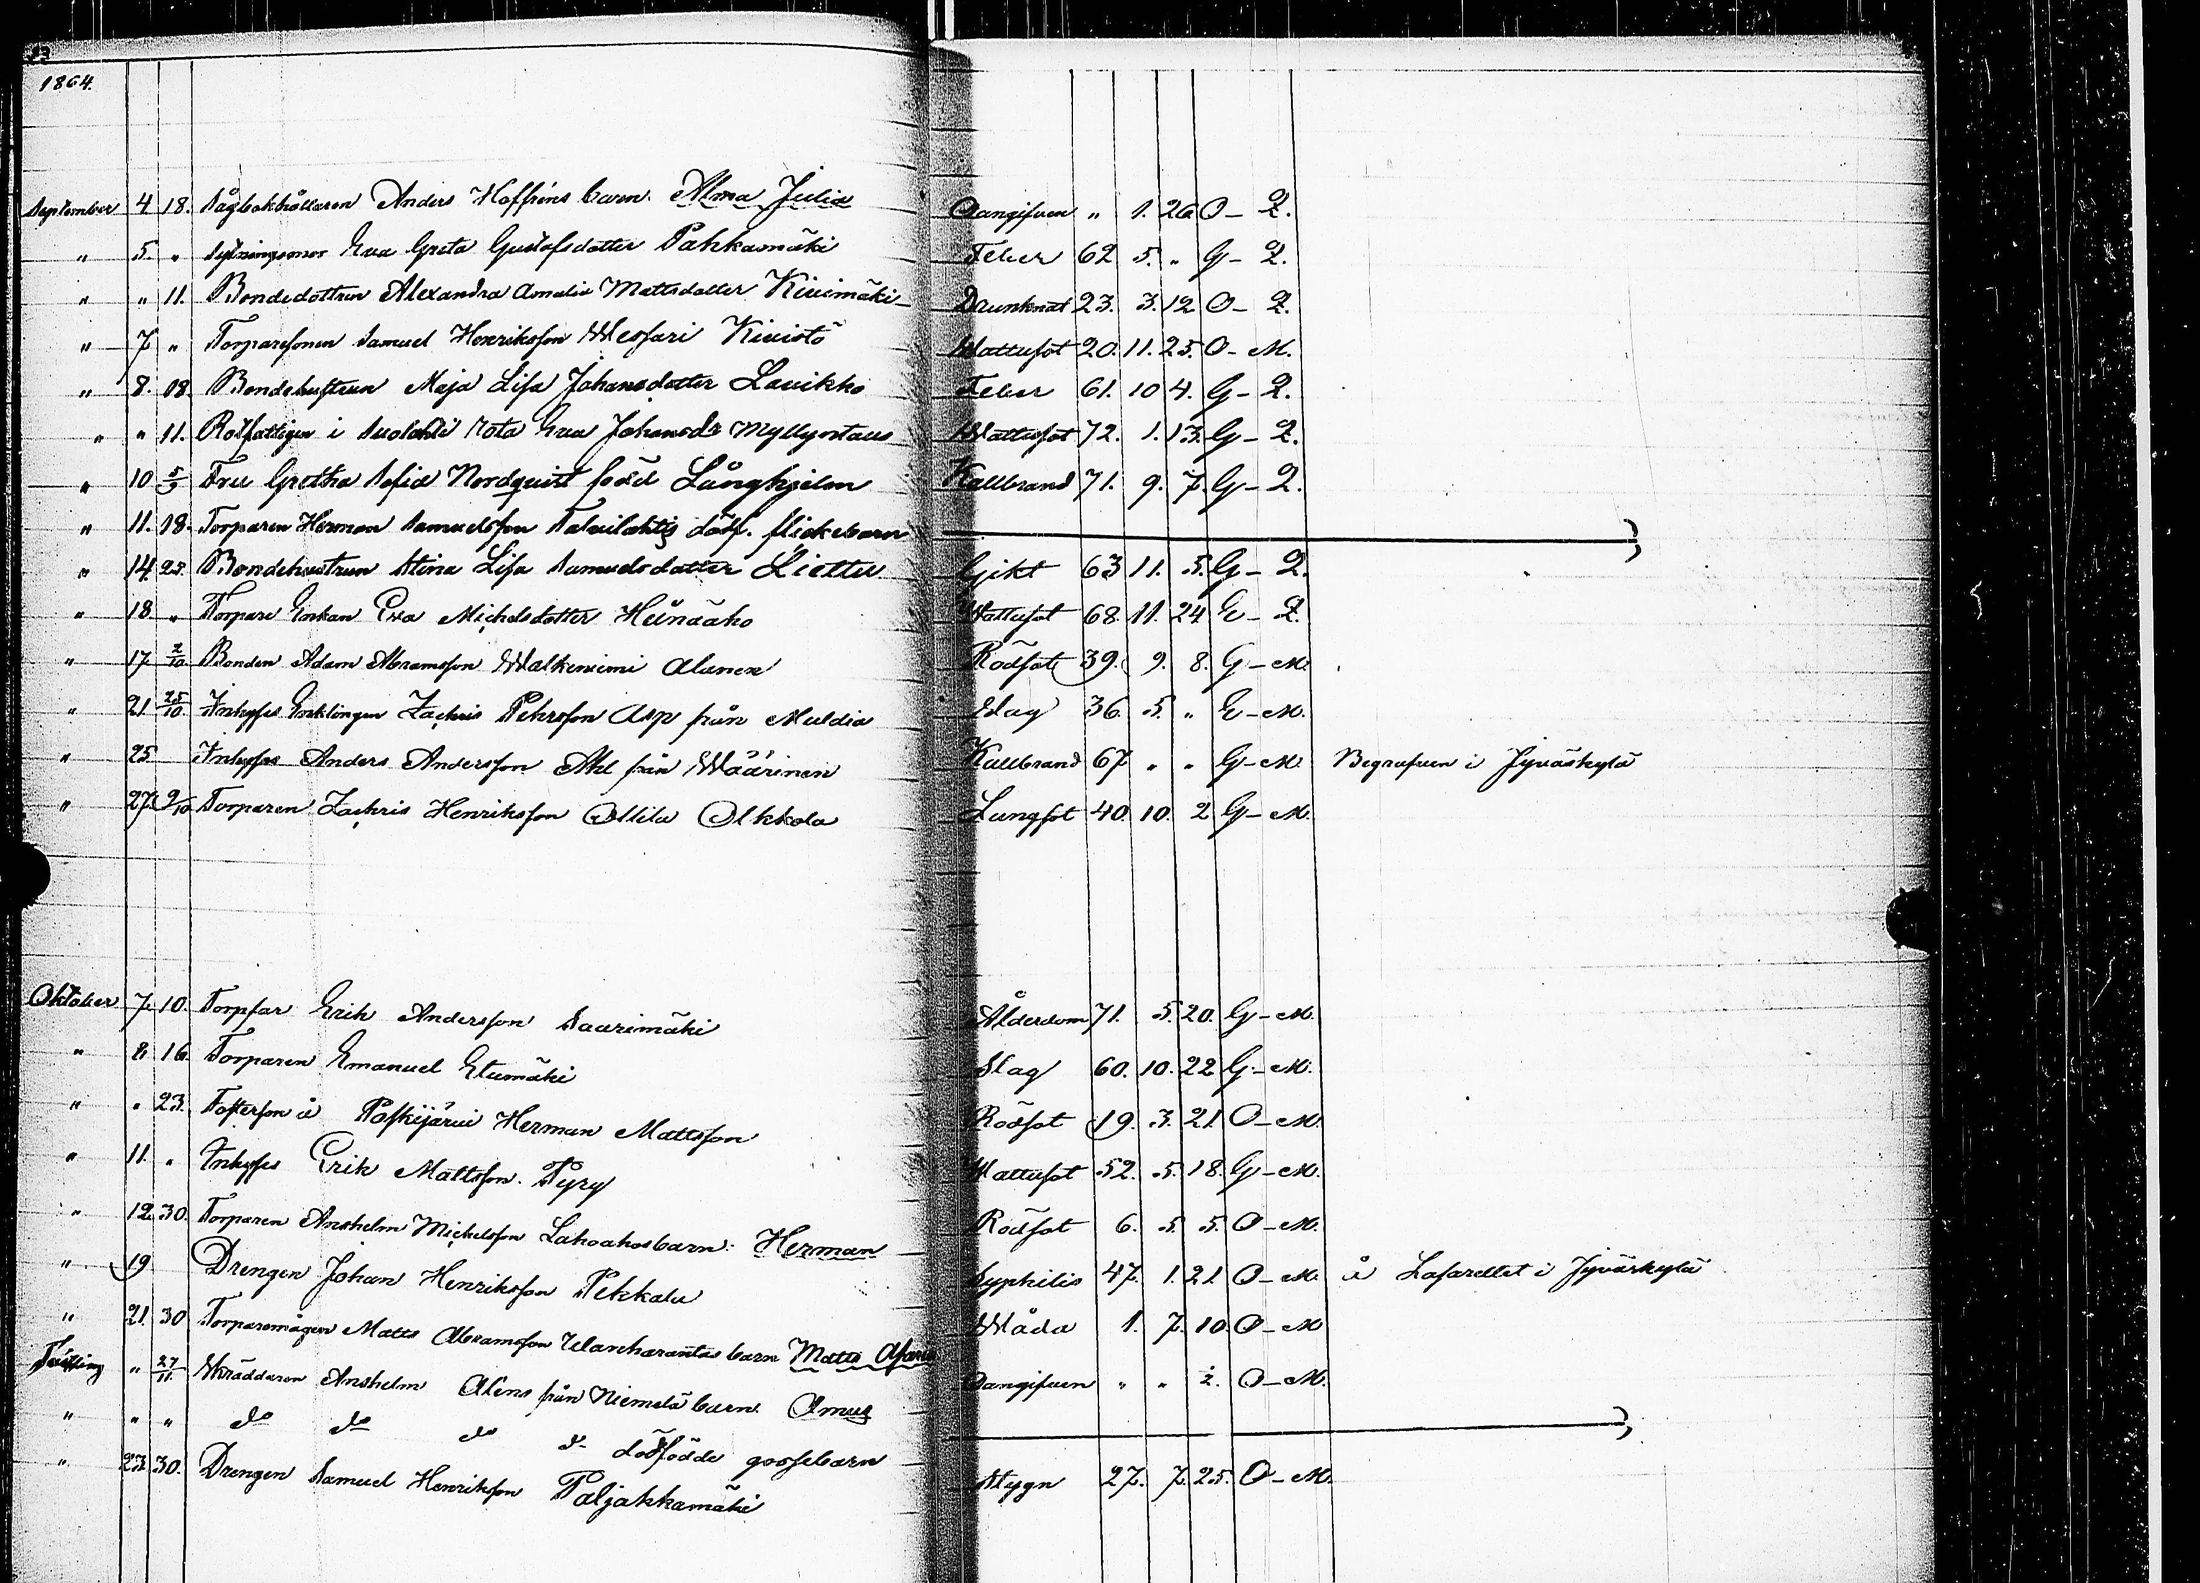 1864.
September 4 18. Sågbokhållaren Anders Hoffréns barn. Alma Julia Oangifven " 1. 26 O - Q.
" 5. " Sytningsmor Eva Greta Gustafsdotter Pahkamäki Feber 62 5. " G - Q.
" " 11. Bondedottren Alexandra Amalia Mattsdotter Kivimäki Drunknat 23. 3. 12 O - Q.
" 7 " Torparesonen Samuel Henriksson Wessari Kivistö Wattusot 20. 11. 25. O - M.
" 8. 18. Bondehustrun Maja Lisa Johansdotter Lavikko Feber 61. 10 4. G - Q.
" " 11. Rotfattigen i Suolahti rota Eva Johansdr Myllymtaus Wattusot 72. 1. 13. G - Q.
" 10 5/3 Fru Gretha Sofia Nordquist född Långhjelm Kallbrand 71. 9. 7. G - Q.
" 11. 18. Torparen Herman Samuelsson Talvilahtis dödf. flickebarn
" 14 25. Bondehustrun Stina Lisa Samuelsdotter Liettu Gikt 63 11. 5. G - Q.
" 18 " Torpare Enkan Eva Michelsdotter Heinäaho Wattusot 68. 11. 24 E - Q.
" 17. 2/10 Bonden Adam Abramsson Walkeniemi Alanen Rödsot 39. 9. 8. G - M.
" 21 25/10. Inhyses Enklingen Zachris Pehrsson Asp från Muldia Slag 36. 5. " E - M.
" 25 Inhyses Anders Andersson Ahl från Wäärinen Kallbrand 67 " " G - M. Begrafven i Jyväskylä
" 27. 9/10 Torparen Zachris Henriksson Ollila Olkkola Lungsot 40. 10. 2 G - M.
Oktober 7. 10. Torpfar Erik Andersson Saarimäki Ålderdom 71. 5. 20. G - M.
" 8. 16. Torparen Emanuel Etumäki Slag 60. 10. 22 G - M.
" " 23. Fosterson å Poskijärvi Herman Mattsson Rödsot 19. 3. 21 O - M.
" 11. " Inhyses Erik Mattsson Pyry Wattusot 52. 5. 18. G - M.
" 12 30. Torparen Anshelm Michelsson Lahoahos barn. Herman Rödsot 6. 5. 5. O - M.
" 19 Drengen Johan Henriksson Pekkala Syphilis 47. 1. 21 O - M. å Lasarettet i Jyväskylä
" 21. 30 Torparemågen Matts Abramsson barn Matts Wåda 1. 7. 10. O - M
Tvilling " 27/11. Skräddaren Anshelm Aléns från Niemelä barn. Oangifven " " O - M.
" " " do do do do dödfödde gossebarn
" 23. 30. Drengen Samuel Henriksson Paljakkamäki Stygn 27. 7. 25. O - M.